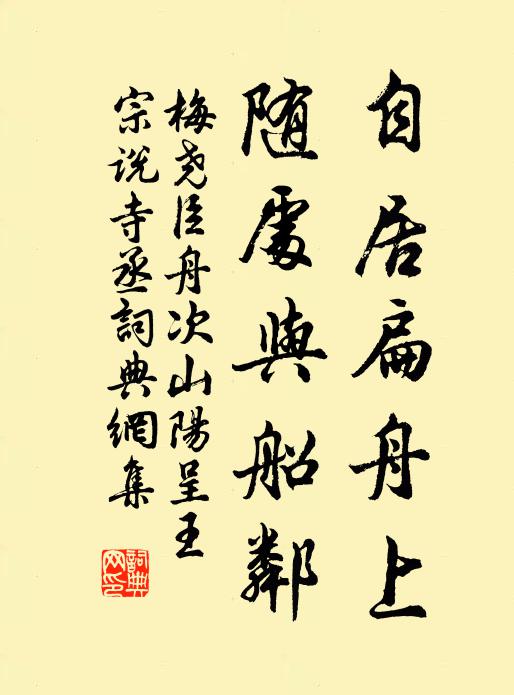 自居扁舟上
随處與船鄰
梅尧臣舟次山陽呈王
宗说寺丞詞典網集
詞典
网印